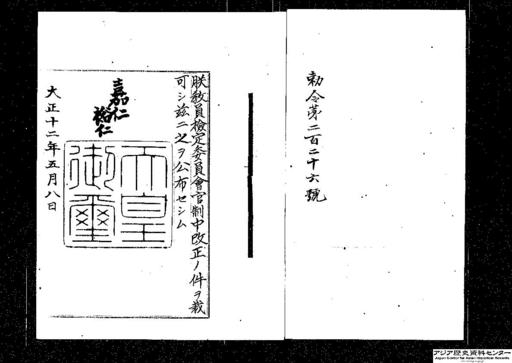 勅令第二百二十六號
朕教員檢定委員會官制中改正ノ件ヲ裁
可シ茲ニ之ヲ公布セシム
嘉仁
裕仁
天皇
御璽
大正十二年五月八日
アジア歴史資料センター
Japan Center for Asian Historical Records